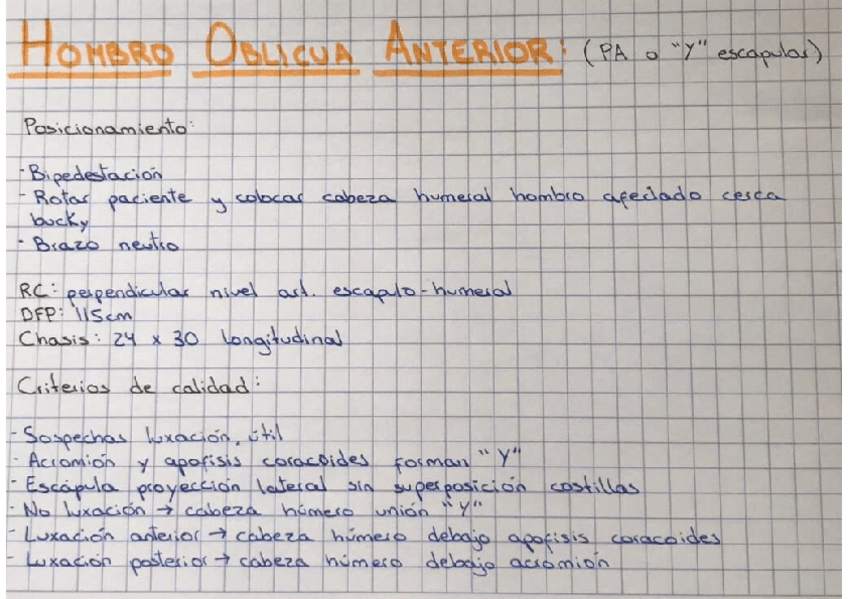 HOMBRO OBLICUA ANTERIOR: (PA o "Y" escapular)
Posicionamiento:
- Bipedestación
- Rotar paciente y colocar cabeza humeral hombro afectado cerca
bucky
- Brazo neutro
RC: perpendicular nivel art. escapulo-humeral
DFP: 115cm
Chasis: 24 x 30 longitudinal
Criterios de calidad:
- Sospechas luxación, útil
- Acromión y apofisis coracoides forman "Y"
- Escápula proyección lateral sin superposición costillas
- No luxación → cabeza húmero unión "Y"
- Luxación anterior → cabeza húmero debajo apofisis coracoides
- Luxación posterior → cabeza húmero debajo acromión